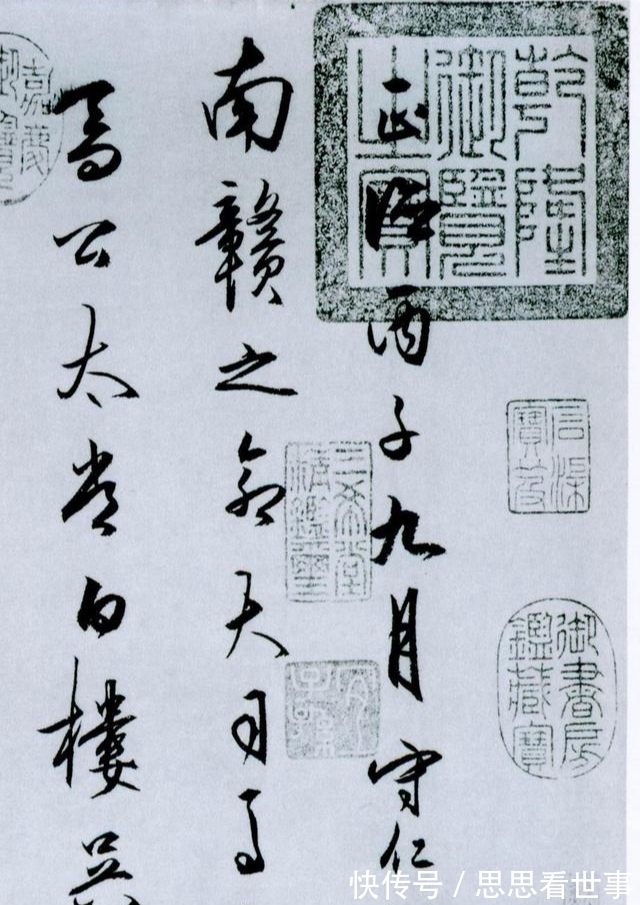 正德丙子九月守仁
南贛之命大司馬
喬公太常白樓吳
乾隆
御覽
之寶
三希堂
精鑑璽
御書房
鑑藏寶
嘉慶
御覽
快传号 / 思思看世事